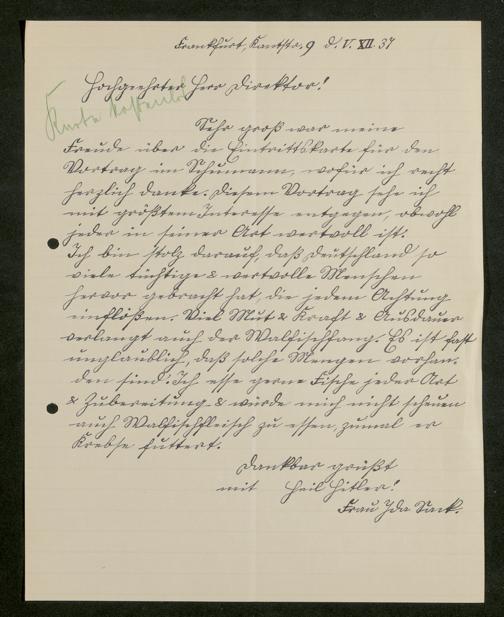 Frankfurt, Kantstr. 9 d. V. XII. 37
Hochgeehrter Herr Direktor!
Karte
Sehr groß war meine
Freude über die Eintrittskarte für den
Vortrag im Schumann, wofür ich recht
herzlich danke. Diesem Vortrag sehe ich
mit größtem Interesse entgegen, obwohl
jeder in seiner Art wertvoll ist!
Ich bin stolz darauf, daß Deutschland so
viele tüchtige & wertvolle Menschen
hervor gebracht hat, die jedem Achtung
einflößen. Viel Mut & Kraft & Ausdauer
verlangt auch der Walfischfang. Es ist fast
unglaublich, daß solche Mengen vorhan-
den sind. Ich esse gerne Fische jeder Art
& Zubereitung & würde mich nicht scheuen
auch Walfischfleisch zu essen, zumal er
Krebse futtert.
Dankbar grüßt
mit Heil Hitler!
Frau Ida Sack.